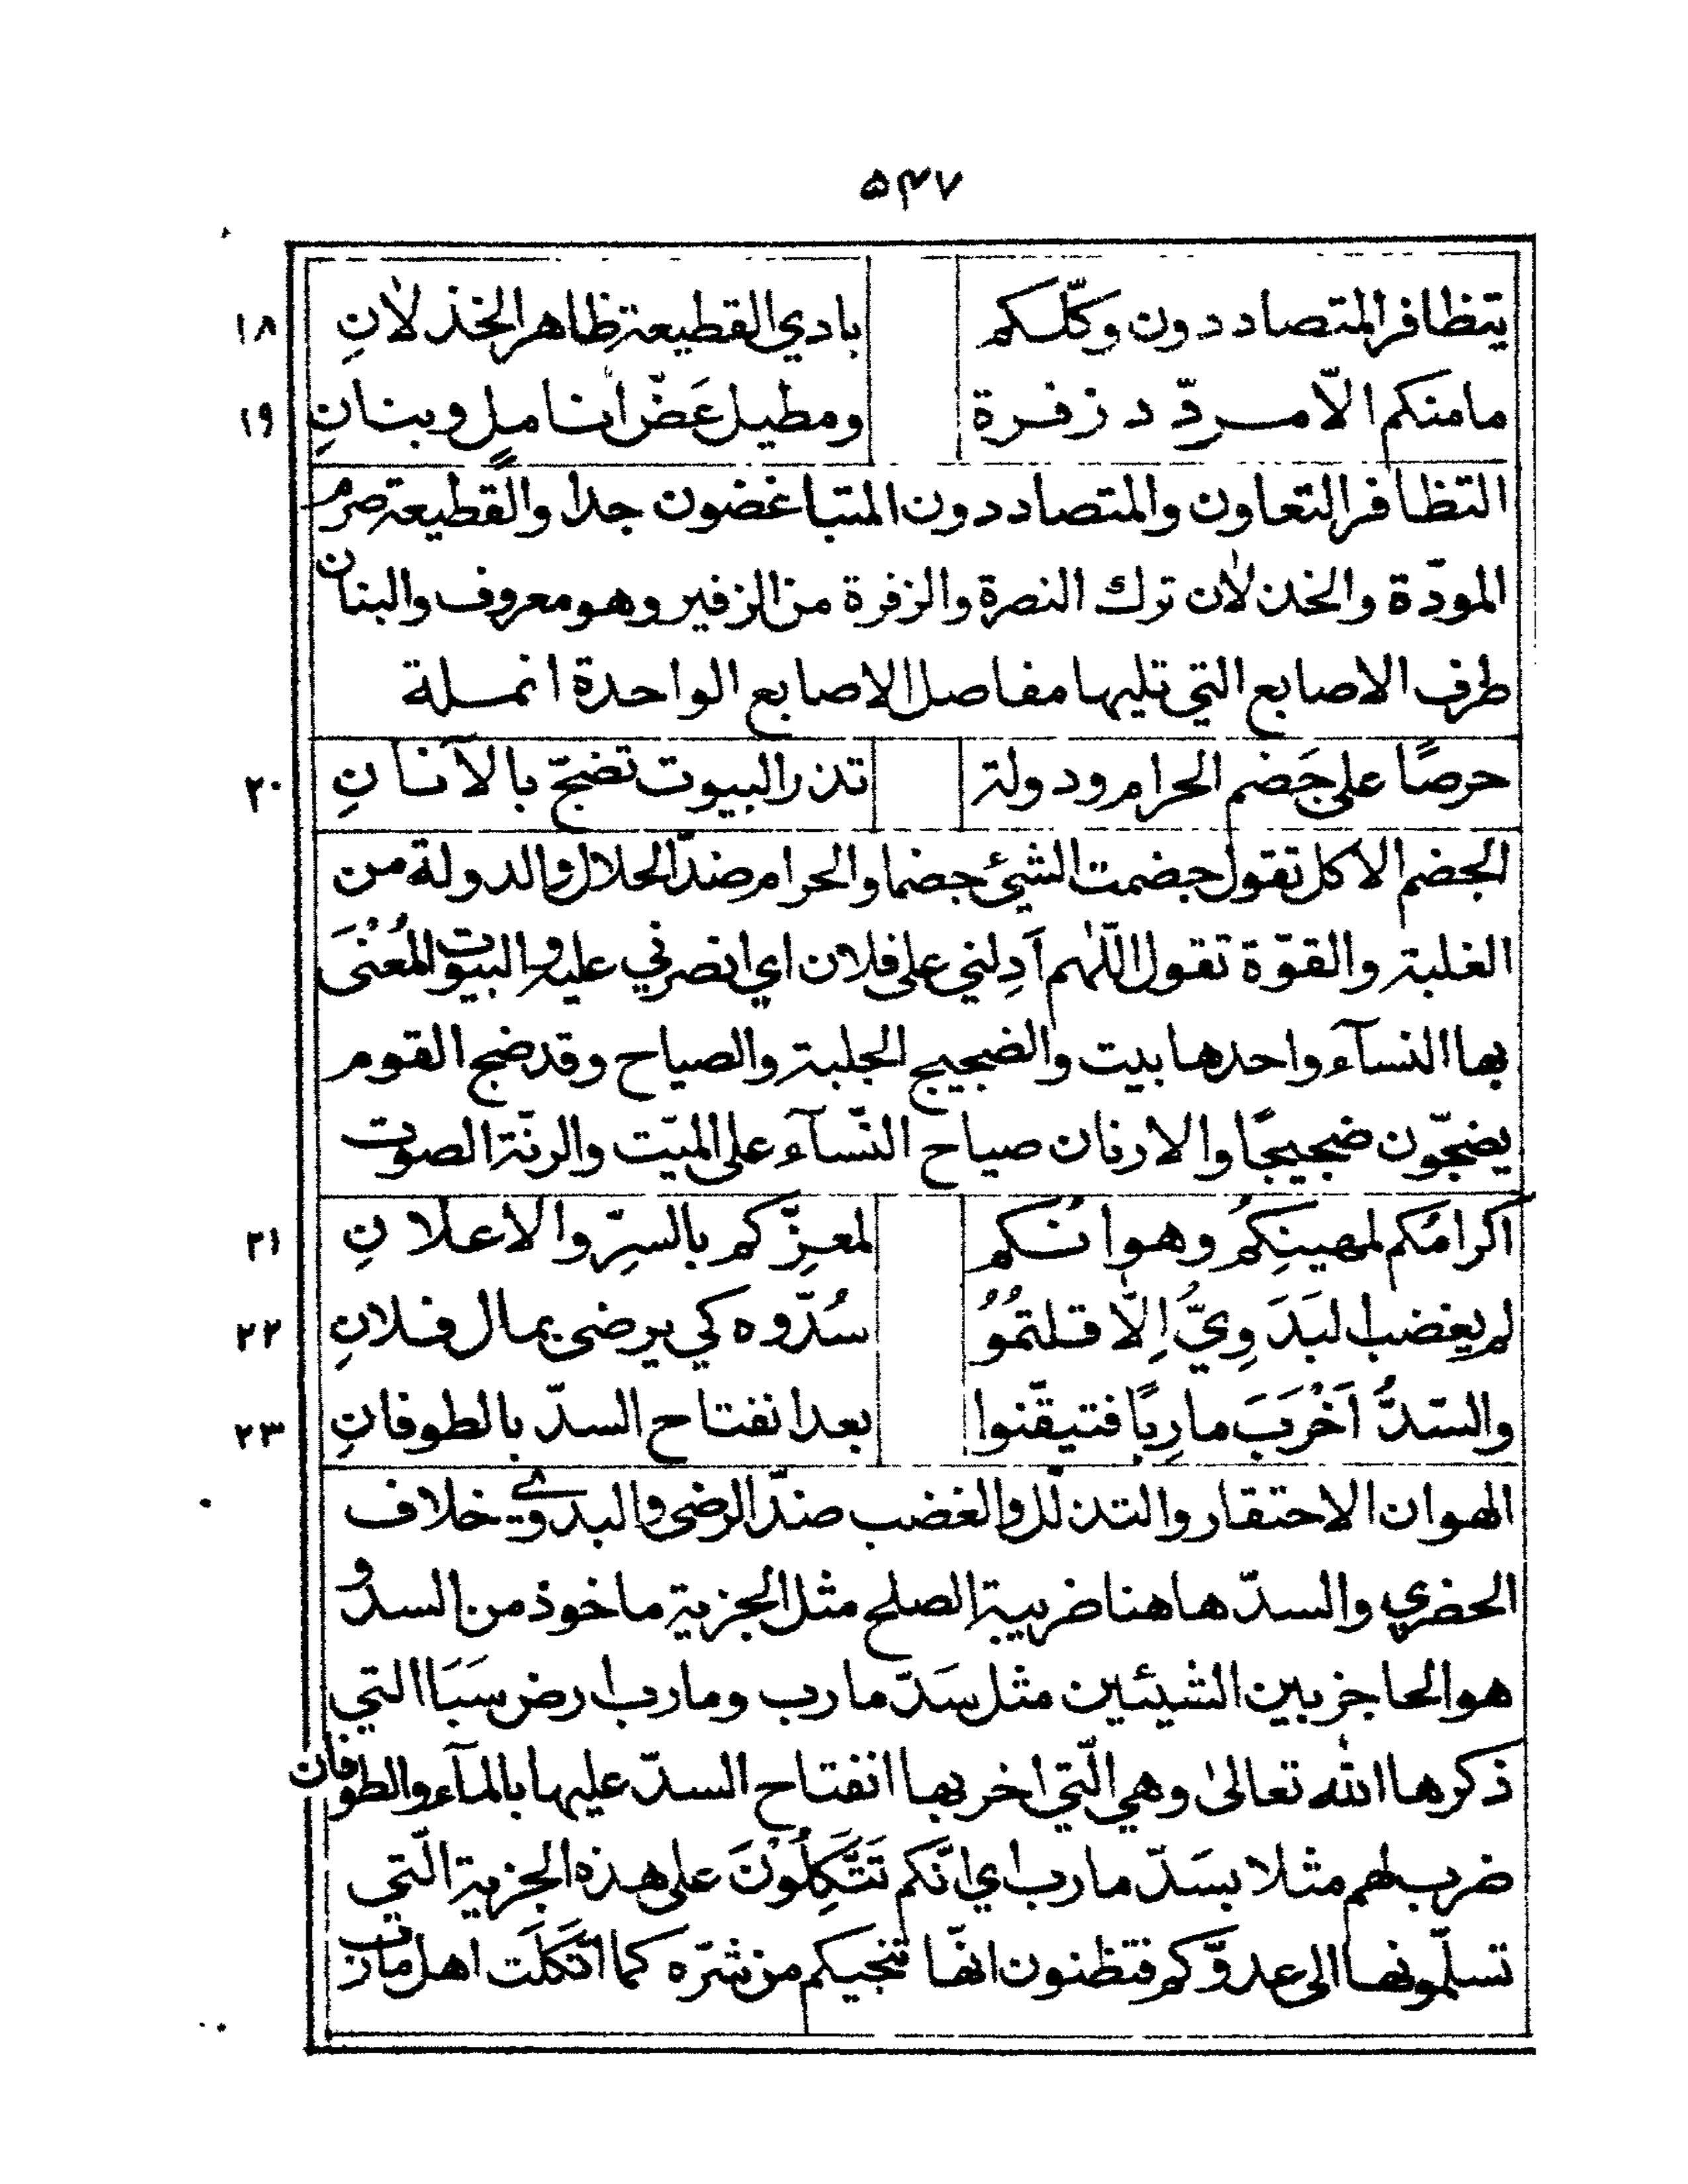 ٥٤٧
يتظافر المتصاددون وكلّكم بادي القطيعة ظاهر الخذلانِ ١٨
ما منكم الّا مردّد زفرة ومطيل عَضّ اناملٍ وبنانِ ١٩
التظافر التعاون والمتصاددون المتباغضون جدا والقطيعة صرم
المودّة والخذلان ترك النصرة والزفرة من الزفير وهو معروف والبنان
طرف الاصابع التي تليها مفاصل الاصابع الواحدة انملة
حرصًا على جَضم الحرام ودولة تذر البيوت تضجّ بالآنانِ ٢٠
الجضم الاكل تقول جضمت الشيئ جضما والحرام ضدّ الحلال والدولة من
الغلبة والقوّة تقول اللّهم اَدِلني على فلان اي انصرني عليه والبيوت المُعْنَى
بها النسآء واحدها بيت والضجيج الجلبة والصياح وقد ضج القوم
يضجّون ضجيجًا والارنان صياح النّسآء على الميّت والرنّة الصوت
اكرامُكم لمهينِكُم وهوانُكم لمعزِّكم بالسرِّ والاعلانِ ٢١
لم يغضب البَدَوِيُّ اِلّا قلتمُوُ سُدّوه كي يرضى بمال فلانِ ٢٢
والسّدُّ اَخْرَبَ مارِبًا فتيقّنوا بعد انفتاح السدّ بالطوفانِ ٢٣
الهوان الاحتقار والتذلّل والغضب ضدّ الرضى والبدوي خلاف
الحضري والسدّ هاهنا ضريبة الصلح مثل الجزية ماخوذ من السد و
هو الحاجز بين الشيئين مثل سَدّ مارب ومارب ارض سَبَا التي
ذكرها الله تعالى وهي الّتي اخربها انفتاح السدّ عليها بالمآء والطوفان
ضرب لهم مثلا بسَدّ مارب اي انّكم تَتَّكِلُوْنَ على هذه الجزية الّتي
تسلّمونها الى عدوّكم فتظنون انّها تنجيكم من شرّه كما اتّكلَت اهل مارب